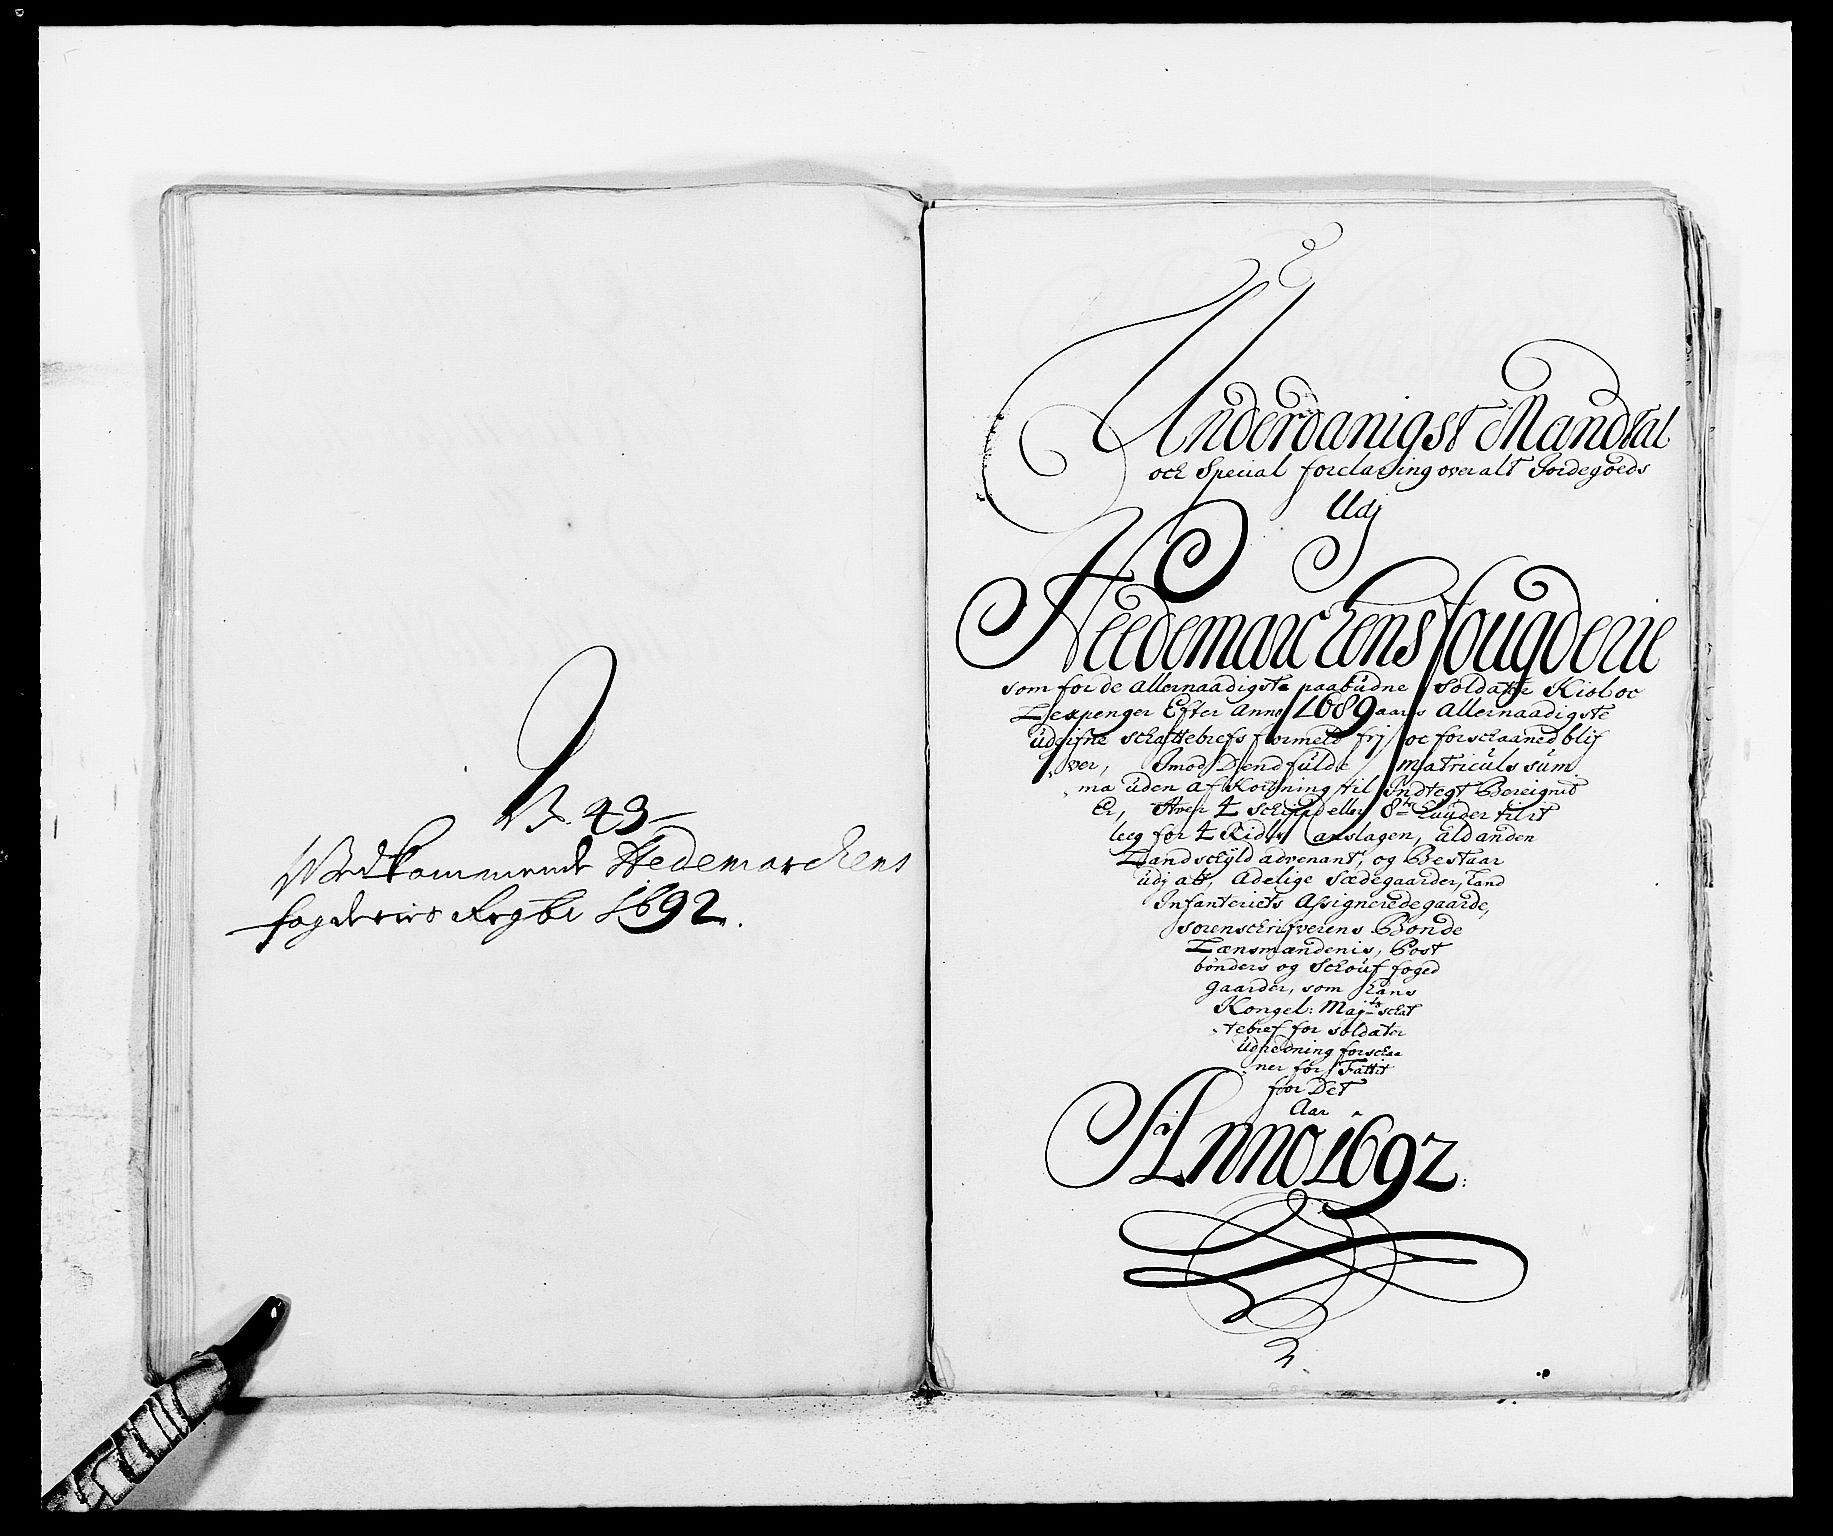 N. 43
Vedkommende Hedemarckens
fogderies Regbr 1692.
Underdanigst Mandtal
och Special forclaring over alt Jordegoeds
Udj
Heedemarckens fougderie
som for de allernaadigste paabüdne Soldatte Kiol oc
Lexpenger Efter Anno 1689 aars Allernaadigste
üdgifne schattebrefs formeld frj oc forschaaned blif
ver, Imod Dend fulde matriculs süm
ma üden afKortning til Indtegt Bereignit
Er, Hver 4 Schippd eller 8te Hüüder tilit
leeg for 4 Ridr anslagen, ald anden
Landschÿld advenant, og Bestaar
udj alt, Adelige Sædegaarder, Land
Infanteriets Assigneredegaarde,
sorenschrifverens Bonde
Lænsmændenis, Post
bönders og Schouffoged
gaarder, som hans
Kongel: Majts schat
tebref for soldater
Udredning forschaa
ner for, Fattit
for Det
Aar
Anno 1692
2